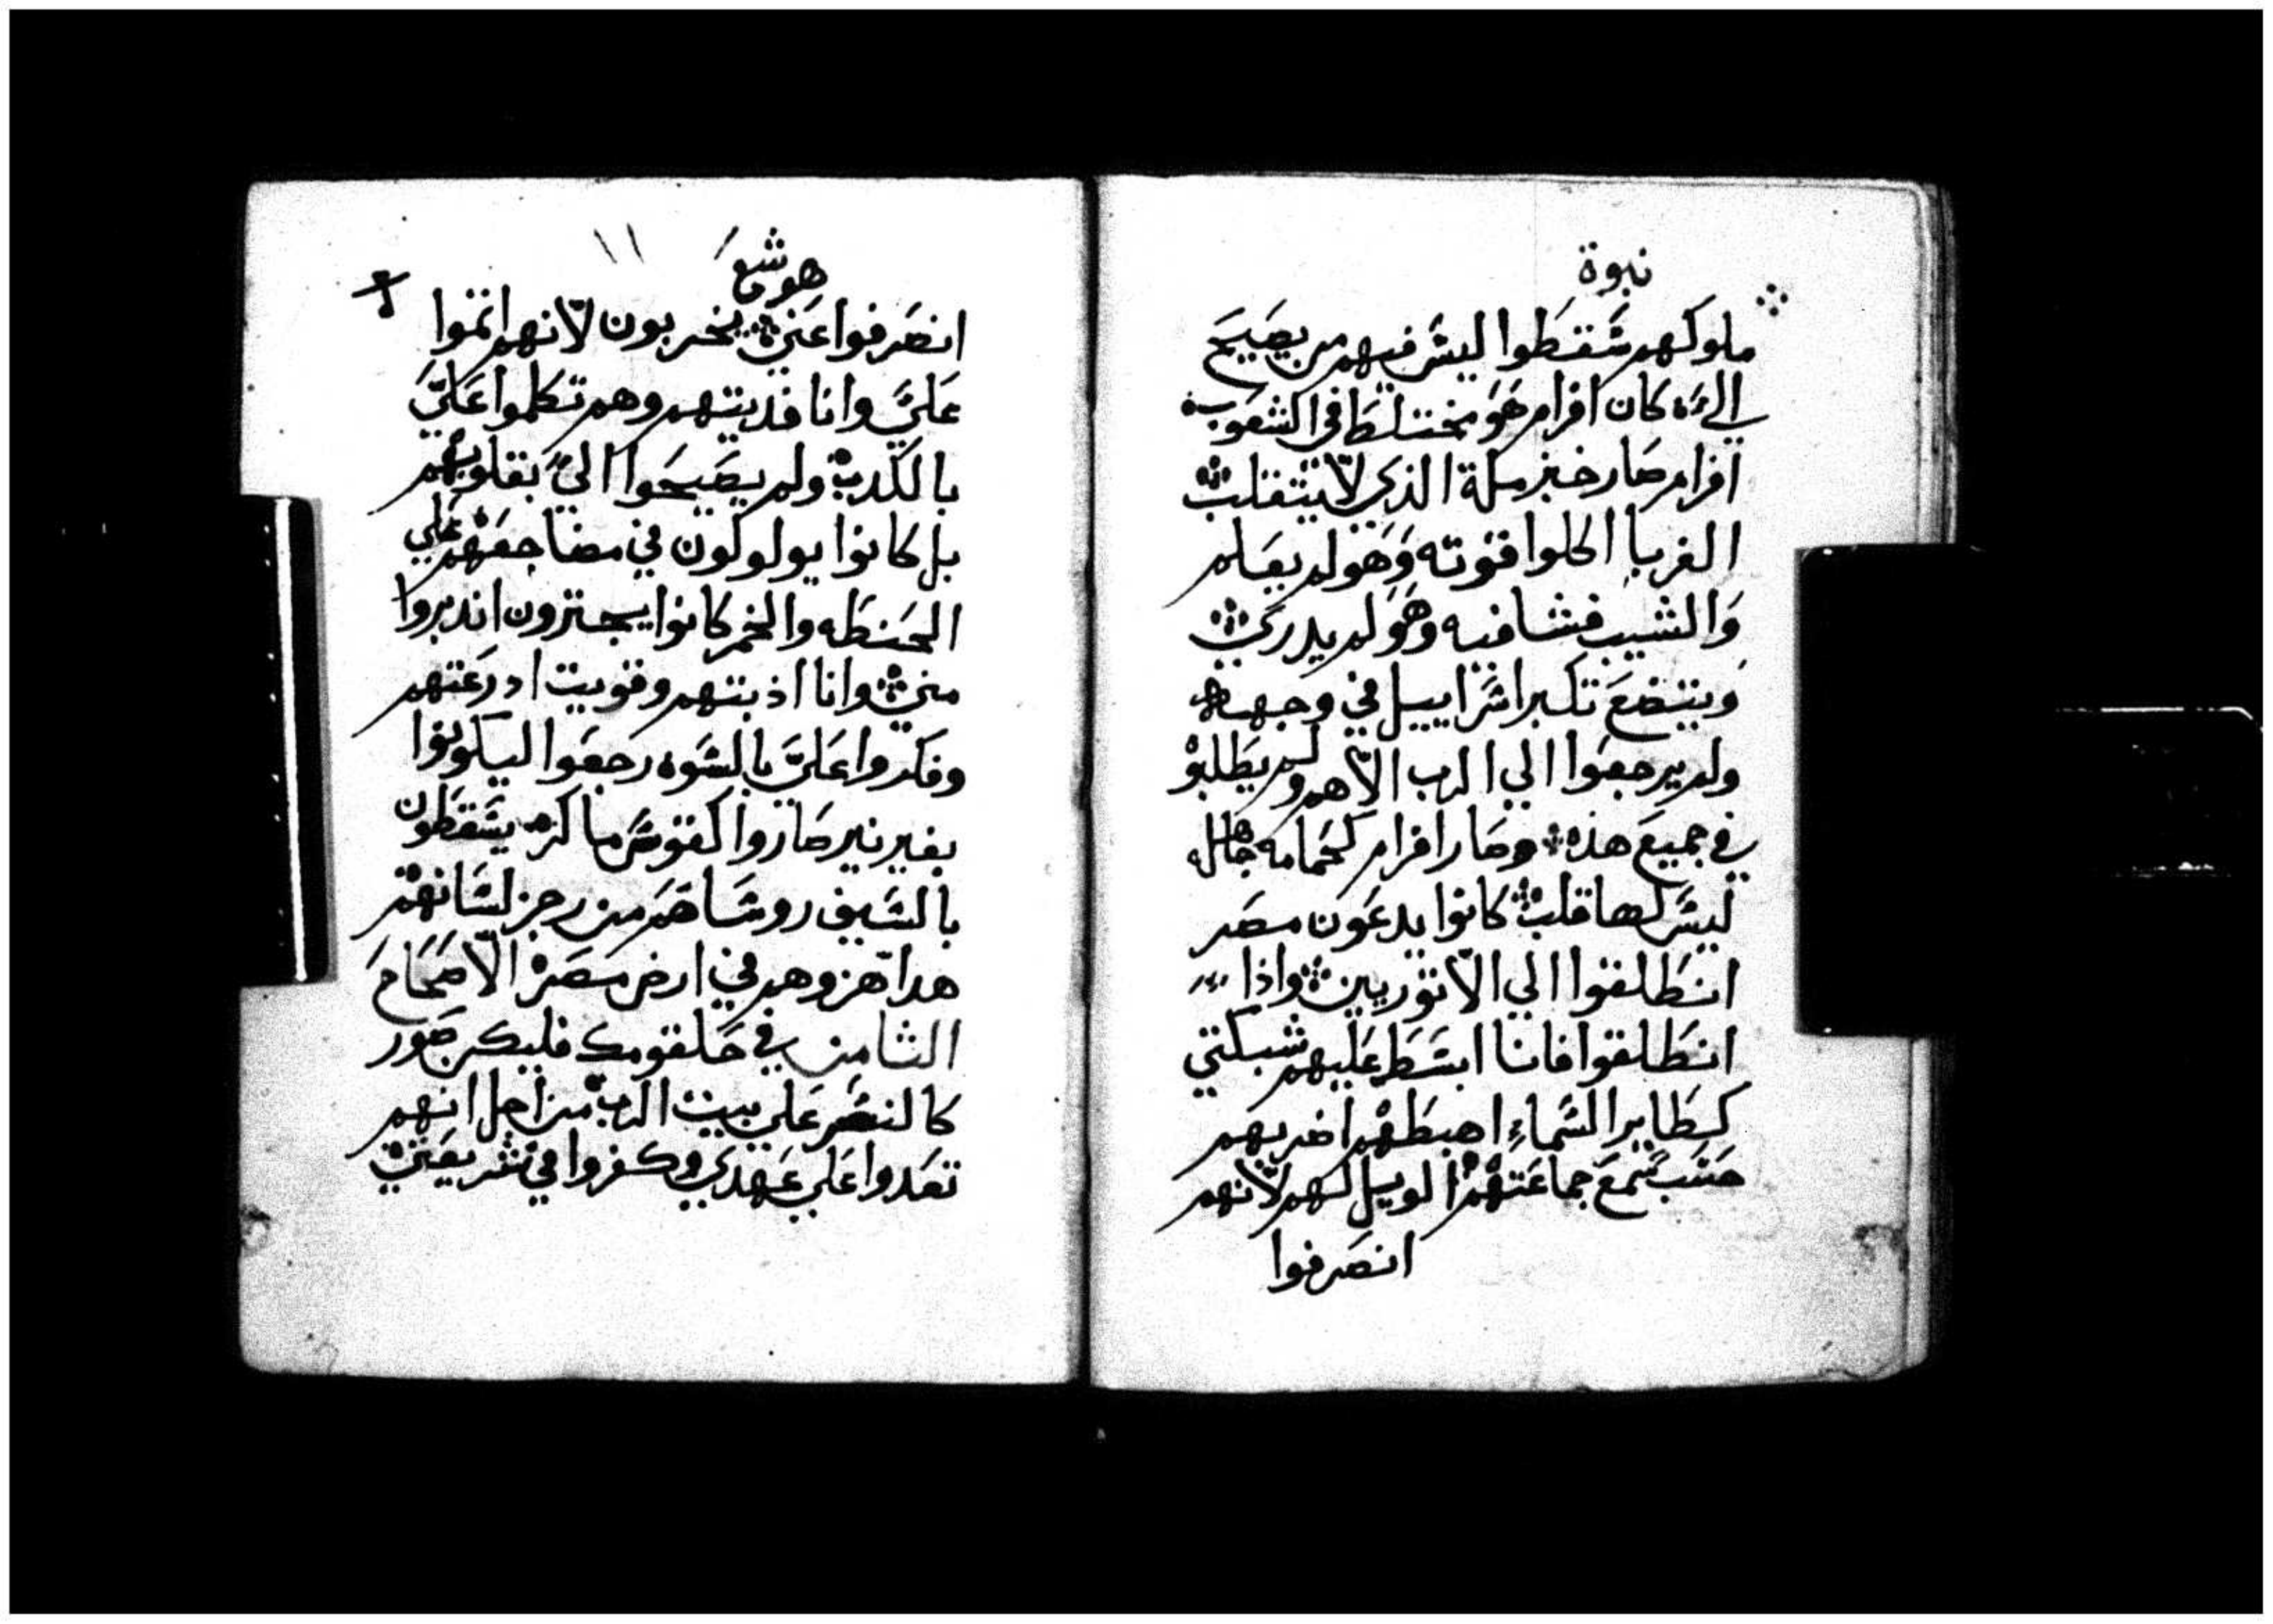 نبوة
ملوكهم سقطوا ليس فيهم من يصيح
الي كان افرام هو مختلط في الشعوب
افرام صار خبز ملة الذي لا يتقلب
الغربا اكلوا قوته وهو لم يعلم
والشيب فشا فيه وهو لم يدرك
ويتضع تكبر اسراييل في وجهه
ولم يرجعوا الي الرب الاههم ولم يطلبو
في جميع هذه وصار افرام كحمامه جاهله
ليس لها قلب كانوا يدعون مصر
انطلقوا الي الاثوريين واذا
انطلقوا فانا ابسط عليهم شبكتي
كطاير السماء اهبطهم اضربهم
حسب سمع جماعتهم الويل لهم لانهم
انصرفوا
هوشع
انصرفوا عني يخربون لانهم اثموا
علي وانا فديتهم وهم تكلموا علي
بالكدب ولم يصيحوا الي بقلوبهم
بل كانوا يولولون في مضاجعهم علي
الحنطه والخمر كانوا يجتزون اندبروا
مني وانا اذبتهم وقويت ادرعتهم
وفكروا علي بالسوه رجعوا ليكونوا
بغير نير صاروا كقوس ماكره يسقطون
بالسيف روساهم من رجز لسانهم
هدا هزوهم في ارض مصر الاصحاح
الثامن في حلقومك فليكن صور
كالنسر علي بيت الرب من اجل انهم
تعدوا علي عهدي وكفروا في شريعتي